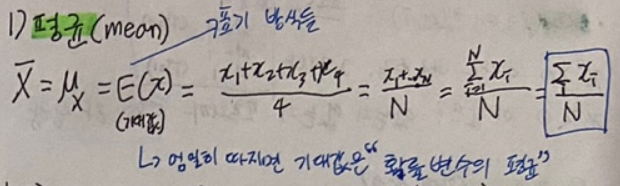 1) 평균(mean) → 표기 방식들
X̄ = μₓ = E(x) = (x₁+x₂+x₃+x₄)/4 = (x₁+…xN)/N = (Σᵢ₌₁ᴺ xᵢ)/N = (Σᵢ xᵢ)/N
(기대값)
↳ 엄밀히 따지면 기대값은 “확률변수의 평균”